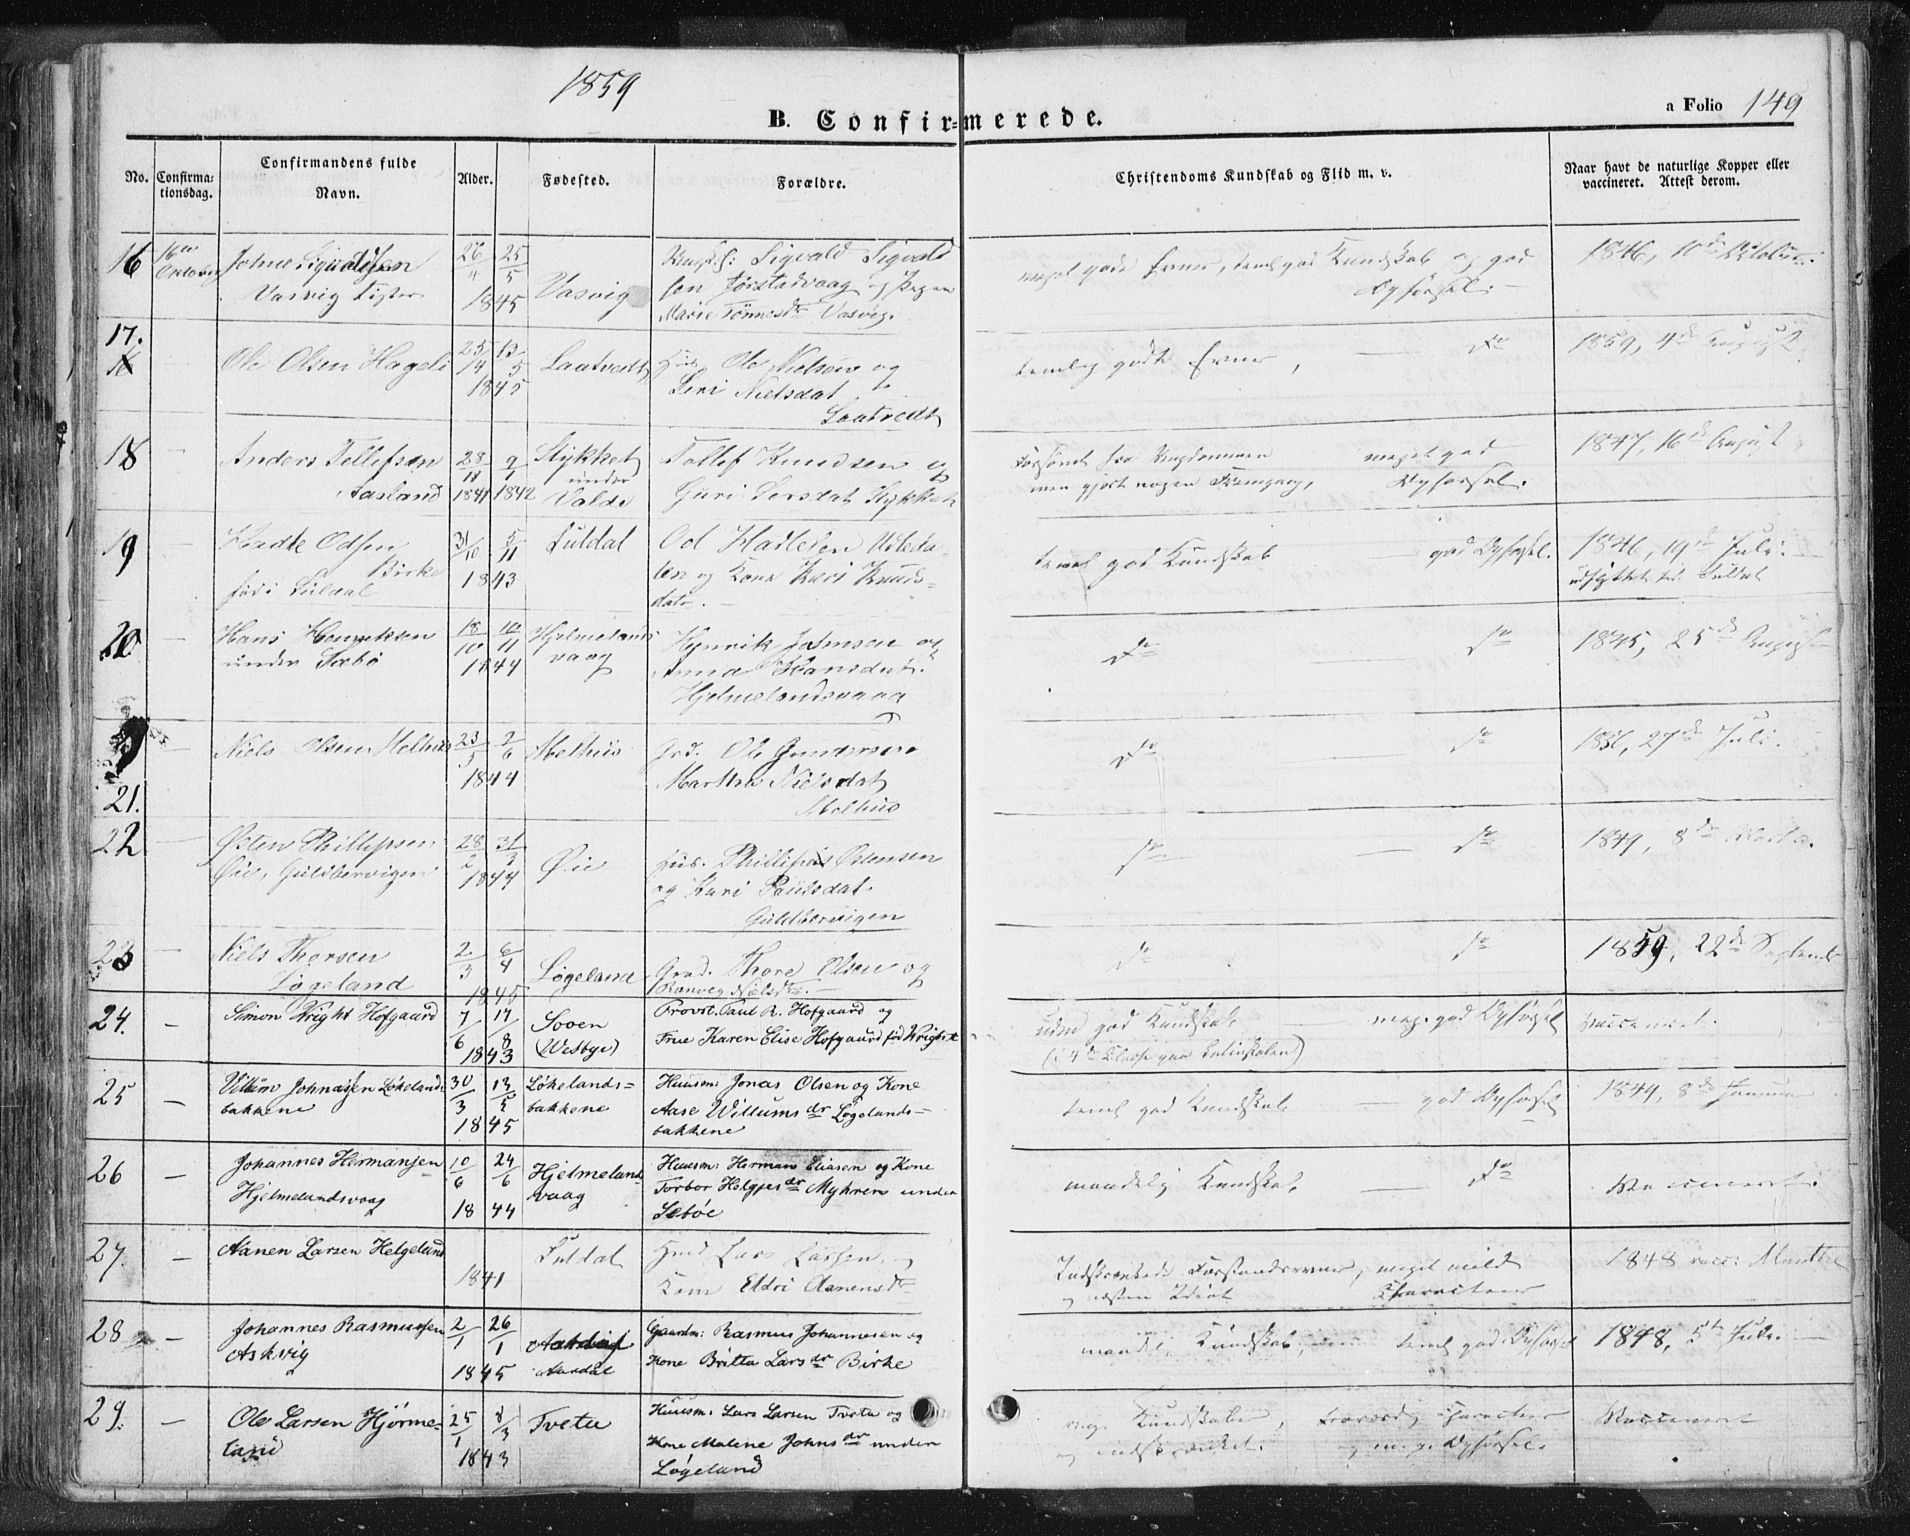 1859
B. Confirmerede.
a Folio 149
No. Confirmationsdag. Confirmandens fulde Navn. Alder. Fødested. Forældre. Christendoms Kundskab og Flid m. v. Naar havt de naturlige Kopper eller vaccineret. Attest derom.
16 16de Oktober
Vasvig
26/4 25/5
1845
Vasvig
Sigvald Sigvald
sen Jørstadvaag og
Marie Tønnesdtr Vasvig.
meget gode Evner, teml. god Kundskab og god
Opførsel.
1846, 10de Oktober.
17.
16
Ole Olsen Hageli
25/4 13/5
1845
Laatvedt
Ole Nielsen og
Siri Nielsdat
Laatvedt
temlig gode Evner, — do
1859, 4de August
18
Anders Tellefsen
Aasland
28/11 9/1
1841 1842
Stykket
under
Valde
Tollef Knudsen og
Guri Stykket
men gjort nogen Fremgang,
meget god
Opførsel.
1847, 16de August
19
Odsen
Birke
født i Suldal
31/10 5/11
1843
Suldal
Od Hadlesen
og Kone Kari Knuds-
datr. —
teml god Kundskab — god Opførsel.
1846, 19de Juli.
udflyttet til Suldal
20 —
Hans Henriksen
under Sæbø
18/10 10/11
1844
Hjelmelands
vaag
Henrik Johnsen og
Anna Hansdatr.
Hjelmelandsvaag
do — do
1845, 25de August
21.
—
Niels Olsen Melhus
23/5 2/6
1844
Melhus
Grd. Ole Gunnarsen
Martha Nielsdat
Melhus
do — do
27de Juli.
22 —
Østen Phillipsen
Øie, Guldbervigen
28/2 31/3
1844
Øie
Hus. Phillip Østensen
og Kari Paulsdat.
Guldbervigen
do — do
1849, 8de
23 —
Niels Thorsen
Løgeland
2/3 6/4
1845
Løgeland
Grd. Thore Olsen og
Ranveg Nielsdtr. —
do — do
1859, 22de Septemb
24. —
Simon Wright Hofgaard
7/6 17/8
1843
Soven
(Wesbye)
Provst. Paul R. Hofgaard og
Frue Karen Elise Hofgaard fød Wright
god Kundskab — meg. god Opførsel
(i 4de Classe paa Latinskolen)
vaccineret.
25 —
Villum Johnasen Løkelands
bakkene
30/3 13/5
1845
Løkelands=
bakkene
Huusm: Jonas Olsen og Kone
Aase Willumsdr Løgelands=
bakkene
teml god Kundskab — god Opførsel
1849, 8de Januar
26 —
Johannes Hermansen
Hjelmelandsvaag
10/6 24/6
1844
Hjelmelands
vaag
Huusm: Herman Eliasen og Kone
Torbor Helgesdr Myhren under
Sebøe
maadelig Kundskab, — do
Vaccineret.
27. —
Aanen Larsen Helgeland
1841
Suldal
Lars Larsen og
Kone Eldri Aanensdtr
Indskrænkede Forstandsevner, meget mild
og næsten Idiot Characteer
1848 vacc:
28 —
Johannes Rasmussen
Askvig
2/1 26/1
1845
Aardal
Gaardm: Rasmus Johannesen og
Kone Britta Larsdr Birke
maadel. Kundskab, teml god Opførsel
1848, 5te Juli. —
29. —
Ole Larsen Hjørme-
land
25/1 8/3
1843
Tvetu
Huusm: Lars Larsen Tvetu og
Kone Malene Johnsdr under
Løgeland
Kundskaber, Characteer
og indskrænket. og m. g. Opførsel.
Vaccineret